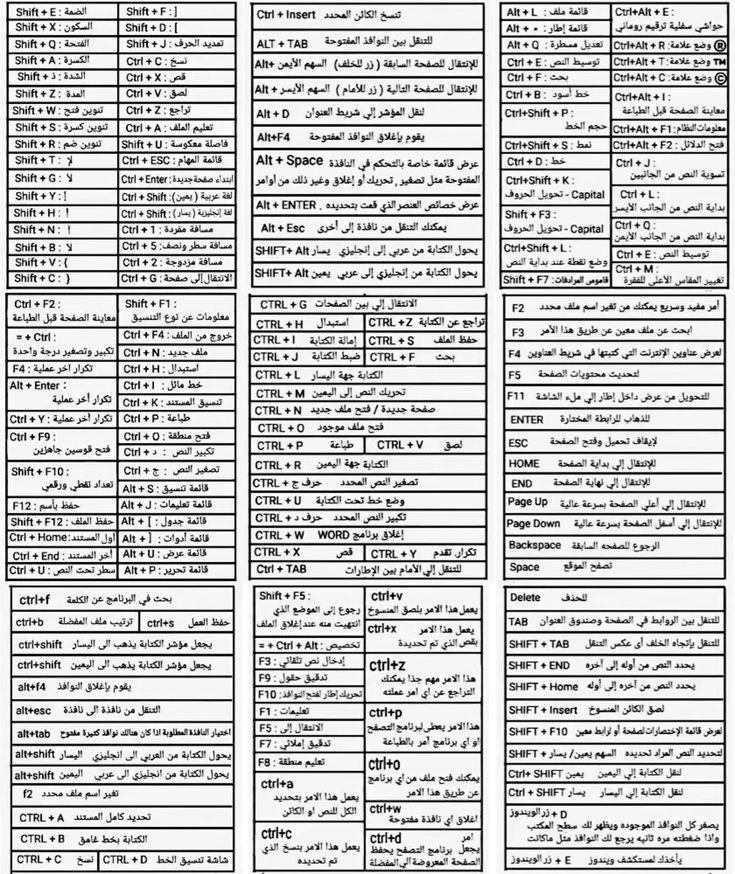 Shift + E : الضمة
Shift + F : [
Shift + X : السكون
Shift + D : [
Shift + Q : الفتحة
Shift + J : تمديد الحرف
Shift + A : الكسرة
Ctrl + C : نسخ
Shift + ذ : الشدة
Ctrl + X : قص
Shift + Z : المدة
Ctrl + V : لصق
Shift + W : تنوين فتح
Ctrl + Z : تراجع
Shift + S : تنوين كسرة
Ctrl + A : تعليم الملف
Shift + R : تنوين ضم
Shift + U : فاصلة معكوسة
Shift + T : لإ
Ctrl + ESC : قائمة المهام
Shift + G : لأ
Ctrl + Enter : ابتداء صفحة جديدة
Shift + Y : إ
Ctrl + Shift : لغة عربية (يمين)
Shift + H : أ
Ctrl + Shift : لغة إنجليزية (يسار)
Shift + N : آ
Ctrl + 1 : مسافة مفردة
Shift + B : لآ
Ctrl + 5 : مسافة سطر ونصف
Shift + V : {
Ctrl + 2 : مسافة مزدوجة
Shift + C : }
Ctrl + G : الانتقال إلى صفحة
Ctrl + Insert تنسخ الكائن المحدد
ALT + TAB للتنقل بين النوافذ المفتوحة
Alt+ للإنتقال للصفحة السابقة ( زر للخلف) السهم الأيمن
Alt + للإنتقال للصفحة التالية ( زر للأمام ) السهم الأيسر
Alt + D لنقل المؤشر إلي شريط العنوان
Alt+F4 يقوم بإغلاق النوافذ المفتوحة
Alt + Space عرض قائمة خاصة بالتحكم في النافذة
المفتوحة مثل تصغير , تحريك أو إغلاق وغير ذلك من أوامر
Alt + ENTER . عرض خصائص العنصر الذي قمت بتحديده
Alt + Esc يمكنك التنقل من نافذة إلى أخرى
SHIFT+ Alt يحول الكتابة من عربي إلى إنجليزي يسار
SHIFT+ Alt يحول الكتابة من إنجليزي إلى عربي يمين
Alt + L : قائمة ملف
Ctrl+Alt + E :
حواشي سفلية ترقيم روماني
Alt + = : قائمة إطار
Alt + Q : تعديل مسطرة
Ctrl+Alt + R : وضع علامة ®
Ctrl + E : توسيط النص
Ctrl+Alt + T : وضع علامة TM
Ctrl + F : بحث
Ctrl+Alt + C : وضع علامة ©
Ctrl + B : خط أسود
Ctrl+Alt + I :
معاينة الصفحة قبل الطباعة
Ctrl+Shift + P :
حجم الخط
Ctrl+Alt + F1 : معلومات النظام
Ctrl+Shift + S : نمط
Ctrl+Alt + F2 : فتح الدلائل
Ctrl + D : خط
Ctrl + J :
تسوية النص من الجانبين
Ctrl+Shift + K :
تحويل الحروف - Capital
Ctrl + L :
بداية النص من الجانب الأيسر
Shift + F3 :
تحويل الحروف - Capital
Ctrl + Q :
بداية النص من الجانب الأيمن
Ctrl+Shift + L :
وضع نقطة عند بداية النص
Ctrl + E : توسيط النص
Ctrl + M :
تغيير المقاس الأعلى للفقرة
Shift + F7 : قاموس المرادفات
Ctrl + F2 :
معاينة الصفحة قبل الطباعة
Shift + F1 :
معلومات عن نوع التنسيق
= + Ctrl :
تكبير وتصغير درجة واحدة
Ctrl + F4 : خروج من الملف
Ctrl + N : ملف جديد
F4 : تكرار اخر عملية
Ctrl + H : استبدال
Alt + Enter :
تكرار أخر عملية
Ctrl + I : خط مائل
Ctrl + K : تنسيق المستند
Ctrl + Y : تكرار أخر عملية
Ctrl + P : طباعة
Ctrl + F9 :
فتح قوسين جاهزين
Ctrl + O : فتح منطقة
Ctrl + د : تكبير النص
Shift + F10 :
تعداد نقطي ورقمي
Ctrl + ج : تصغير النص
Alt + S : قائمة تنسيق
F12 : حفظ بأسم
Alt + J : قائمة تعليمات
Shift + F12 : حفظ الملف
Alt + [ : قائمة جدول
Ctrl + Home : أول المستند
Alt + ] : قائمة أدوات
Ctrl + End : أخر المستند
Alt + U : قائمة عرض
Ctrl + U : سطر تحت النص
Alt + P : قائمة تحرير
CTRL + G الانتقال إلي بين الصفحات
CTRL + H استبدال
CTRL + Z تراجع عن الكتابة
CTRL + I إمالة الكتابة
CTRL + S حفظ الملف
CTRL + J ضبط الكتابة
CTRL + F بحث
CTRL + L الكتابة جهة اليسار
CTRL + M تحريك النص إلى اليمين
CTRL + N صفحة جديدة / فتح ملف جديد
CTRL + O فتح ملف موجود
CTRL + P طباعة
CTRL + V لصق
CTRL + R الكتابة جهة اليمين
CTRL + حرف ج تصغير النص المحدد
CTRL + U وضع خط تحت الكتابة
CTRL + حرف د تكبير النص المحدد
CTRL + W إغلاق برنامج WORD
CTRL + X قص
CTRL + Y تكرار تقدم
Ctrl + TAB للتنقل إلي الأمام بين الإطارات
F2 أمر مفيد وسريع يمكنك من تغير اسم ملف محدد
F3 ابحث عن ملف معين عن طريق هذا الأمر
F4 لعرض عناوين الإنترنت التي كتبتها في شريط العناوين
F5 لتحديث محتويات الصفحة
F11 للتحويل من عرض داخل إطار إلي ملء الشاشة
ENTER للذهاب للرابطة المختارة
ESC لإيقاف تحميل وفتح الصفحة
HOME للإنتقال إلي بداية الصفحة
END للإنتقال إلي نهاية الصفحة
Page Up للإنتقال إلي أعلي الصفحة بسرعة عالية
Page Down للإنتقال إلي أسفل الصفحة بسرعة عالية
Backspace الرجوع للصفحه السابقة
Space تصفح الموقع
ctrl+f بحث في البرنامج عن الكلمة
ctrl+b ترتيب ملف المفضلة
ctrl+s حفظ العمل
ctrl+shift يجعل مؤشر الكتابة يذهب الى اليسار
ctrl+shift يجعل مؤشر الكتابة يذهب الى اليمين
alt+f4 يقوم بإغلاق النوافذ
alt+esc التنقل من نافذة الى نافذة
alt+tab اختيار النافذة المطلوبة اذا كان هنالك نوافذ كثيرة مفتوح
alt+shift يحول الكتابة من العربي الى انجليزي اليسار
alt+shift يحول الكتابة من انجليزي الى عربي اليمين
f2 تغير اسم ملف محدد
CTRL + A تحديد كامل المستند
CTRL + B الكتابة بخط غامق
CTRL + C نسخ
CTRL + D شاشة تنسيق الخط
Shift + F5 :
رجوع إلى الموضع الذي
انتهيت منه عند إغلاق الملف
= + Ctrl + Alt : تخصيص
F3 : إدخال نص تلقائي
F9 : تدقيق حقول
F10 : تحريك إطار لفتح النوافذ
F1 : تعليمات
F5 : الانتقال إلى
F7 : تدقيق إملائي
F8 : تعليم منطقة
ctrl+a
يعمل هذا الامر بتحديد
الكل للنص او الكائن
ctrl+c
يعمل هذا الامر بنسخ الذي
تم تحديده
ctrl+v
يعمل هذا الامر بلصق المنسوخ
ctrl+x يعمل هذا الامر
بقص الذي تم تحديدة
ctrl+z
هذا الامر مهم جدا يمكنك
التراجع عن اي امر عملته
ctrl+p
هذا الامر يعطى لبرنامج التصفح
او اي برنامج أمر بالطباعة
ctrl+o
يمكنك فتح ملف من اي برنامج
عن طريق هذا الامر
ctrl+w
اغلاق اي نافذة مفتوحة
ctrl+d أمر
يجعل برنامج التصفح يحفظ
الصفحة المعروضة الى المفضلة
Delete للحذف
TAB للتنقل بين الروابط في الصفحة وصندوق العنوان
SHIFT + TAB للتنقل بإتجاه الخلف أى عكس التنقل
SHIFT + END يحدد النص من أوله إلى أخره
SHIFT + Home يحدد النص من آخره إلى أوله
SHIFT + Insert لصق الكائن المنسوخ
SHIFT + F10 لعرض قائمة الإختصارات لصفحة أو لرابط معين
SHIFT + السهم يمين/ يسار لتحديد النص المراد تحديده
Ctrl+ SHIFT يمين لنقل الكتابة إلي اليمين
Ctrl + SHIFT يسار لنقل الكتابة إلي اليسار
زر الويندوز + D
يصغر كل النوافذ الموجوده ويظهر لك سطح المكتب
واذا ضغطته مره ثانيه يرجع لك النوافذ مثل ماكانت
زر الويندوز + E يأخذك لمستكشف ويندوز